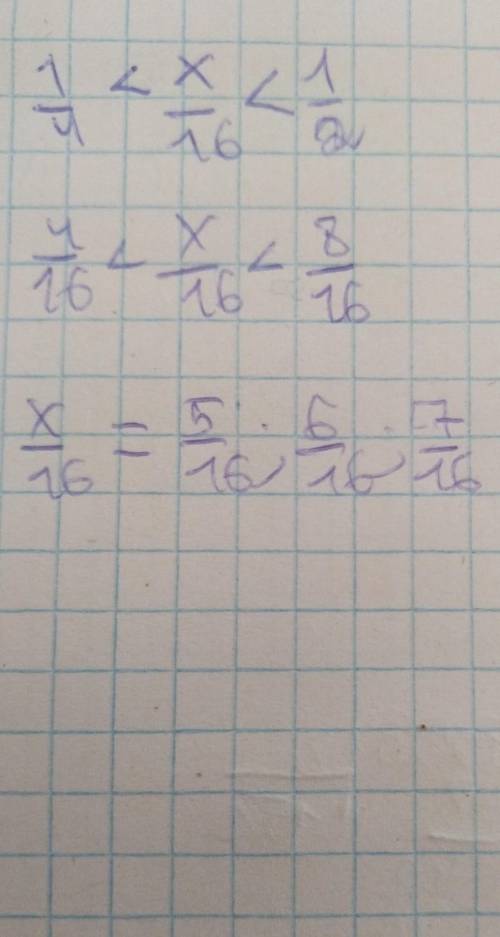 1/4 < x/16 < 1/2
4/16 < x/16 < 8/16
x/16 = 5/16; 6/16; 7/16